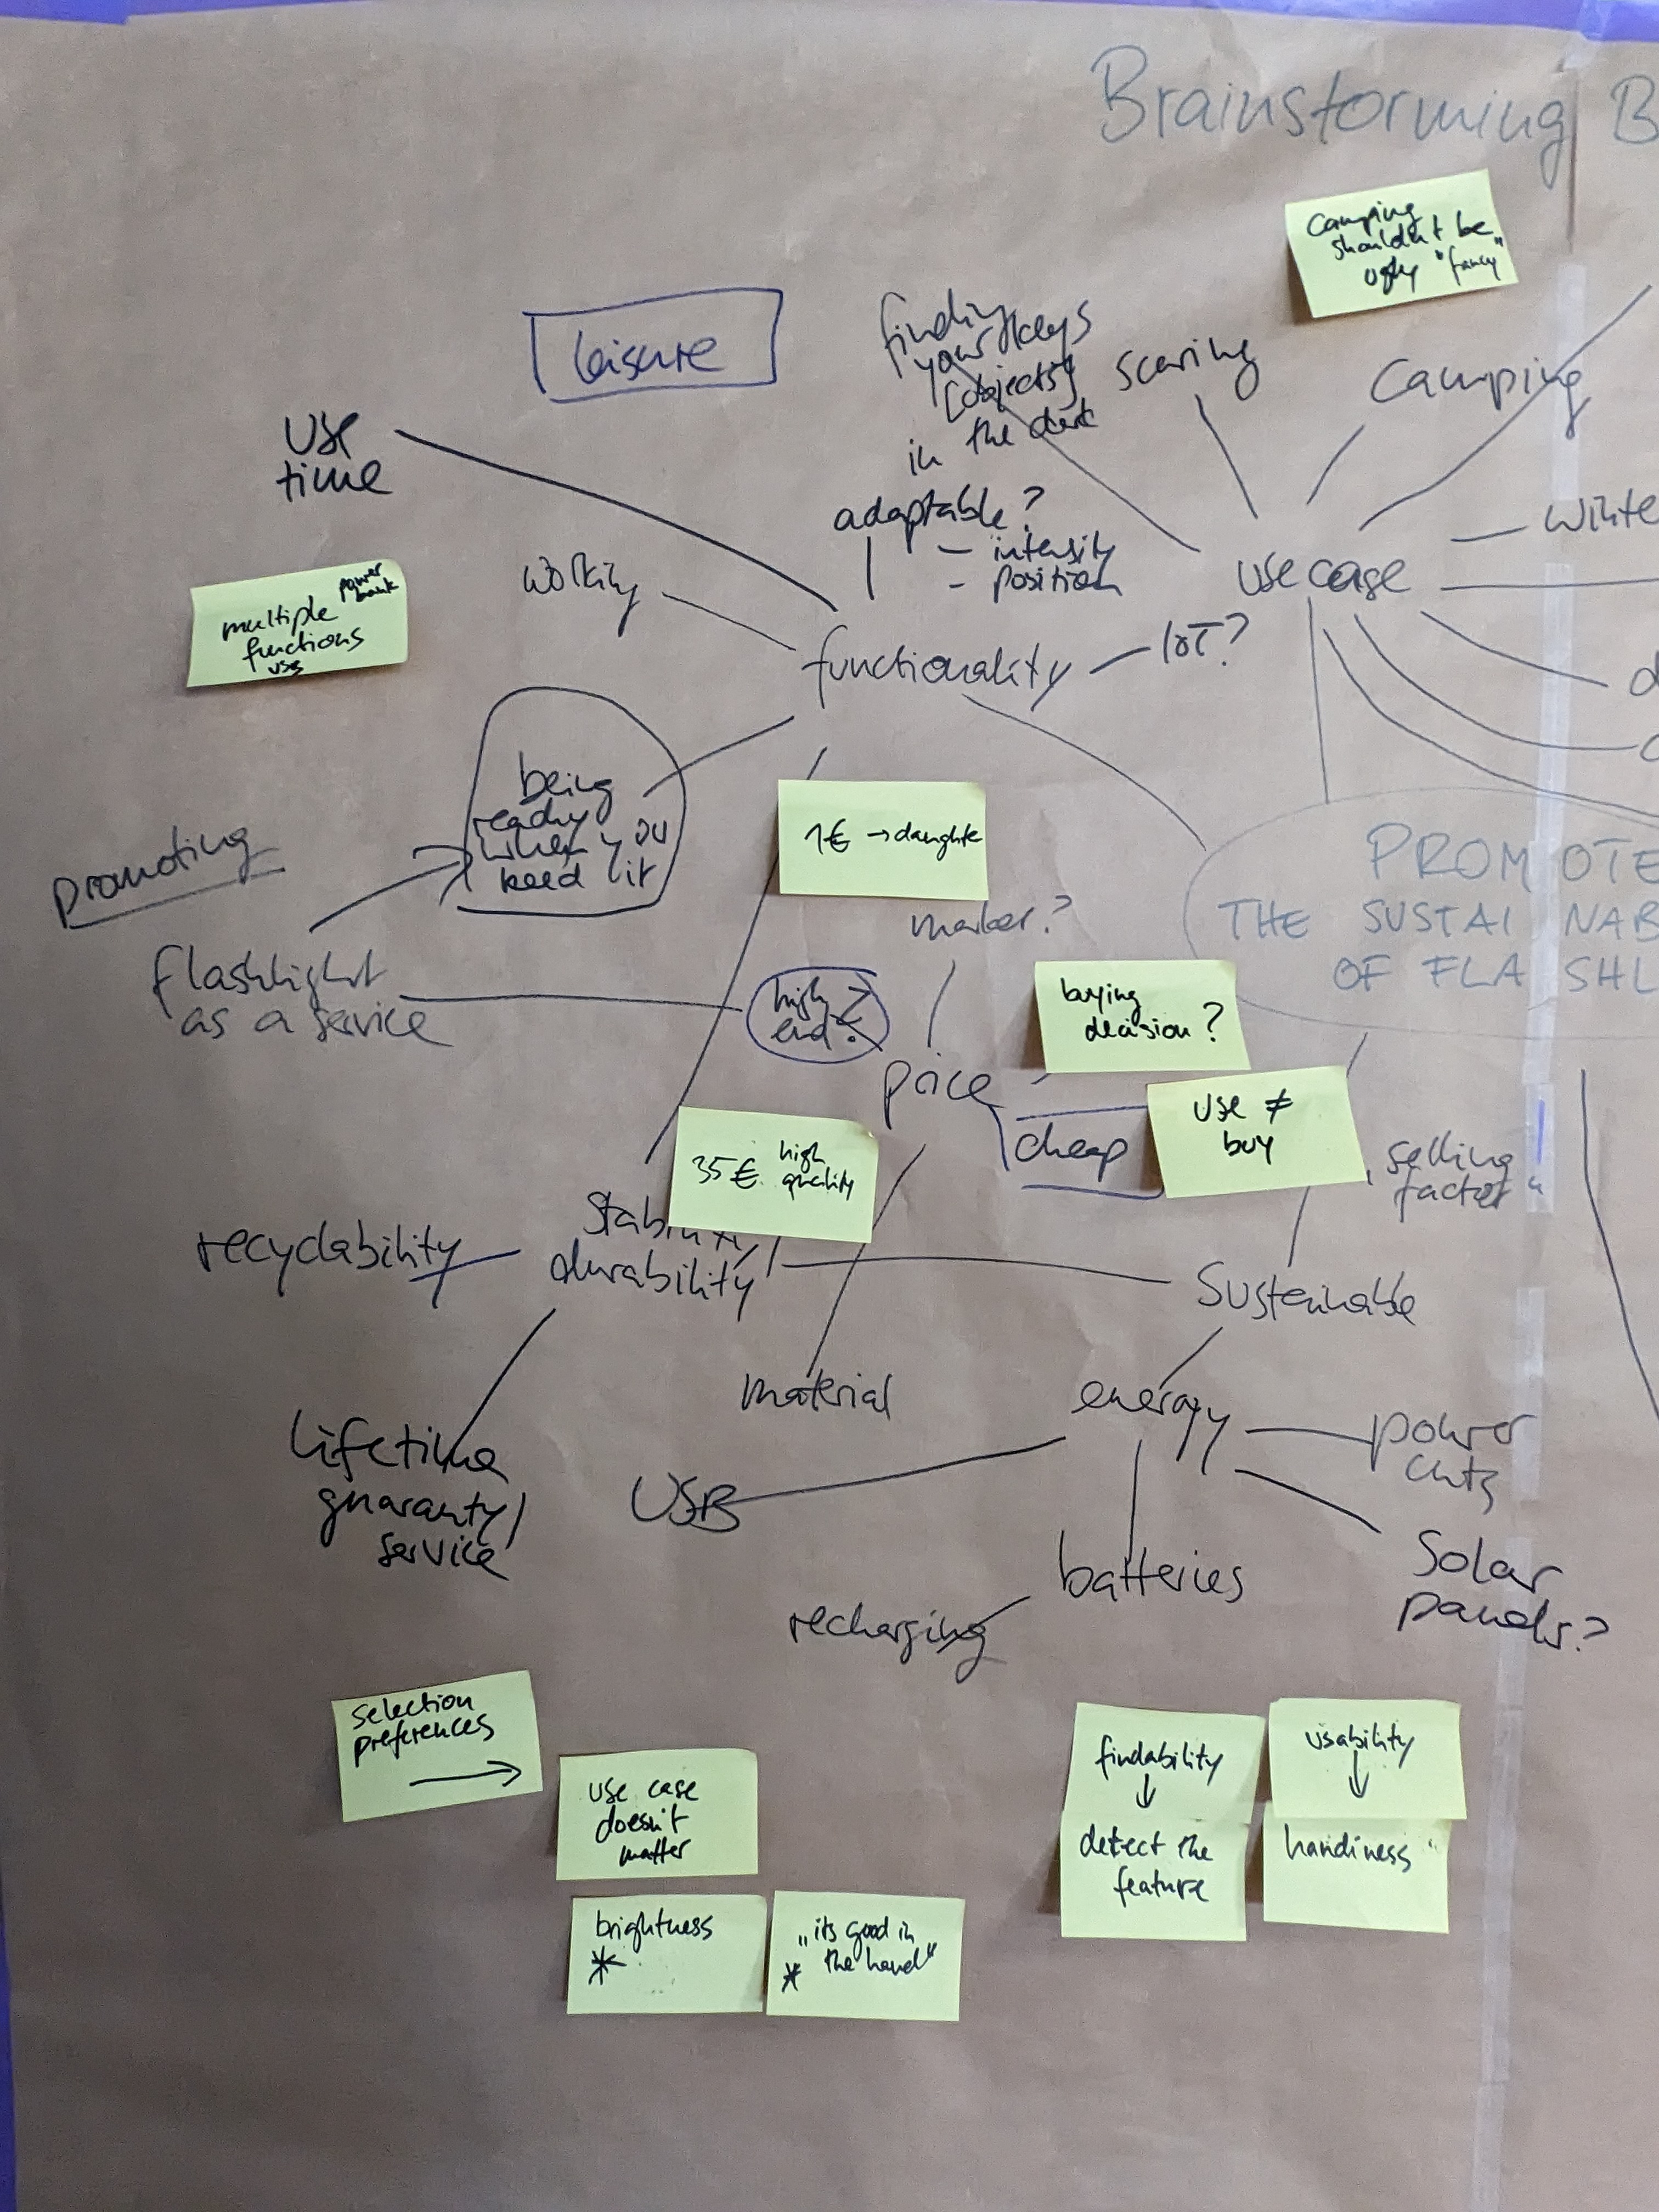 Brainstorming B
camping
shouldn't be
ugly "fancy"
leisure
finding
your keys
[objects]
in the dark
scaring
camping
use
time
adaptable?
- intensity
- position
use case
working
power
bank
multiple
functions
USB
functionality
IoT?
being
ready
when you
need it
promoting
1€ → daughte
PROMOTE
THE SUSTAINAB
OF FLASHL
flashlight
as a service
high
end?
buying
decision?
price
cheap
use ≠
buy
"selling
factor"
35€ high
quality
recyclability
durability
sustainable
material
energy
power
cuts
lifetime
guaranty/
service
USB
batteries
solar
panels?
recharging
selection
preferences
→
use case
doesn't
matter
brightness
*
„its good in
* the hand"
findability
↓
detect the
feature
usability
↓
handiness"